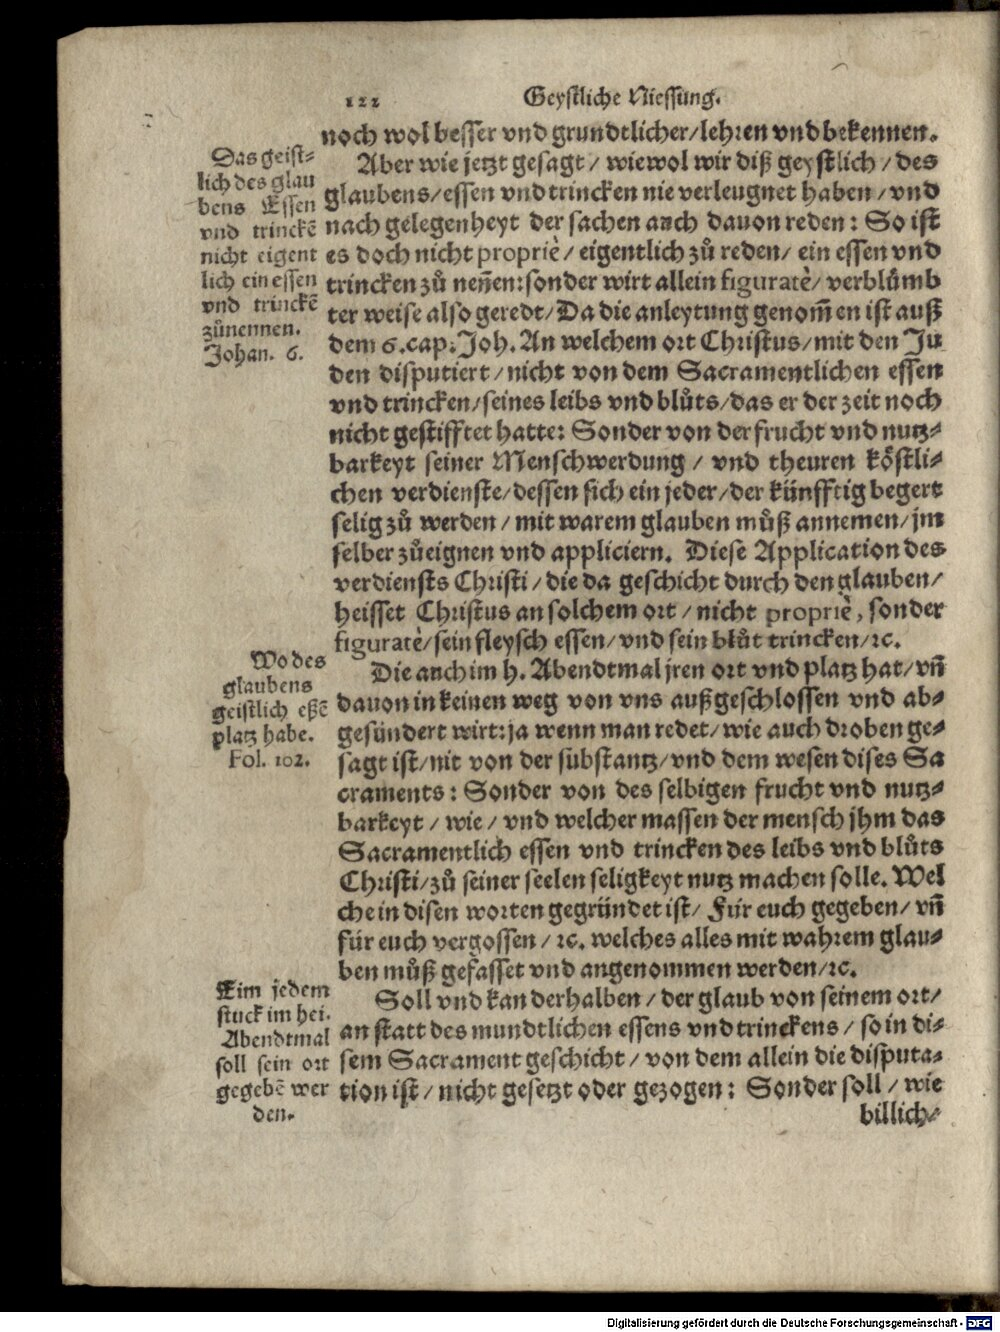 122 Geystliche Niessung.
noch wol besser vnd grundtlicher/lehren vnd bekennen.
Aber wie jetzt gesagt/ wiewol wir diß geystlich/ des
glaubens/essen vnd trincken nie verleugnet haben/ vnd
nach gelegenheyt der sachen auch dauon reden: So ist
es doch nicht propriè/ eigentlich zů reden/ ein essen vnd
trincken zů neñen: sonder wirt allein figuratè/ verblůmb
ter weise also geredt/ Da die anleytung genom̃en ist auß
dem 6.cap. Joh. An welchem ort Christus/mit den Ju
den disputiert/nicht von dem Sacramentlichen essen
vnd trincken/seines leibs vnd blůts/das er der zeit noch
nicht gestifftet hatte: Sonder von der frucht vnd nutz-
barkeyt seiner Menschwerdung/ vnd theuren köstli-
chen verdienste/dessen sich ein jeder/der künfftig begert
selig zů werden/ mit warem glauben můß annemen/jm
selber zůeignen vnd appliciern. Diese Application des
verdiensts Christi/ die da geschicht durch den glauben/
heisset Christus an solchem ort/ nicht propriè, sonder
figuratè/sein fleysch essen/vnd sein blůt trincken/ꝛc.
Die auch im h. Abendtmal jren ort vnd platz hat/ vñ
dauon in keinen weg von vns außgeschlossen vnd ab-
gesündert wirt: ja wenn man redet/wie auch droben ge-
sagt ist/nit von der substantz/vnd dem wesen dises Sa
craments: Sonder von desselbigen frucht vnd nutz-
barkeyt/ wie/ vnd welcher massen der mensch jhm das
Sacramentlich essen vnd trincken des leibs vnd blůts
Christi/zů seiner seelen seligkeyt nutz machen solle. Wel
che in disen worten gegründet ist/ Für euch gegeben/ vñ
für euch vergossen/ ꝛc. welches alles mit wahrem glau-
ben můß gefasset vnd angenommen werden/ꝛc.
Soll vnd kan derhalben/ der glaub von seinem ort/
an statt des mundtlichen essens vnd trinckens/ so in di-
sem Sacrament geschicht/ von dem allein die disputa-
tion ist/ nicht gesetzt oder gezogen: Sonder soll/ wie
billich-
Das geist-
lich des glau
bens Essen
vnd trinckẽ
nicht eigent
lich ein essen
vnd trinckẽ
zůnennen.
Johan. 6.
Wo des
glaubens
geistlich eßẽ
platz habe.
Fol. 102.
Eim jedem
stuck im hei.
Abendtmal
soll sein ort
gegebẽ wer
den.
Digitalisierung gefördert durch die Deutsche Forschungsgemeinschaft - DFG